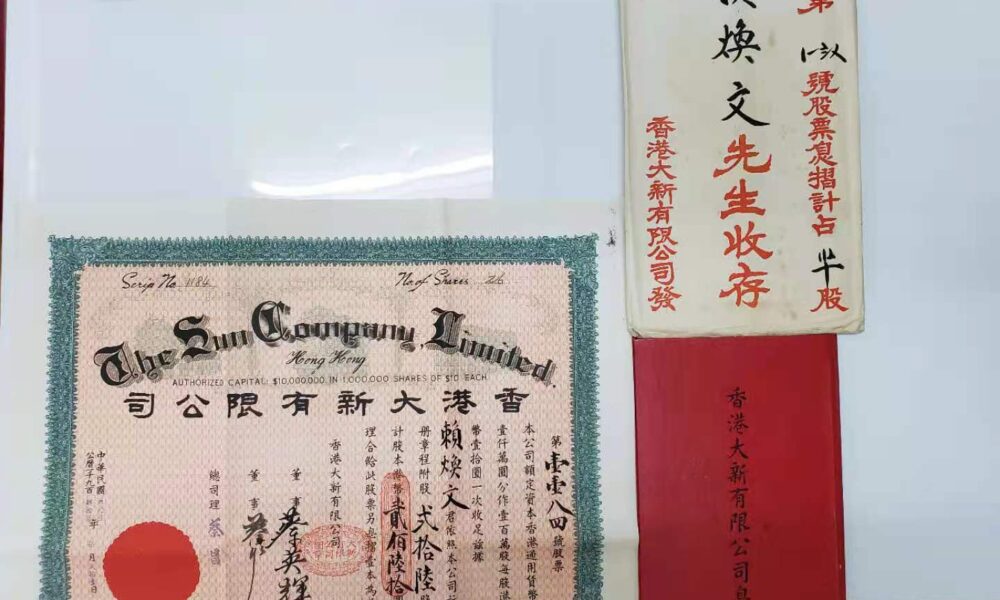 Scrip No. 1184
No of Shares 26
The Sun Company, Limited.
Hong Kong
AUTHORIZED CAPITAL: $10,000,000 IN 1,000,000 SHARES OF $10 EACH.
香港大新有限公司
第壹壹八四號股票
本公司額定資本香港通用貨幣
壹仟萬圓分作壹百萬股每股港
幣壹拾圓一次收足茲據
賴煥文君依照本公司
册章程附股弍拾陸股
計股本港幣貳佰陸拾
理合給此股票另息摺壹本為
香港大新有限公司
董事蔡英輝
董事
總司理蔡昌
中華民國
公曆一千九百
第
號股票息摺計占
半股
煥文先生收存
香港大新有限公司發
香港大新有限公司息